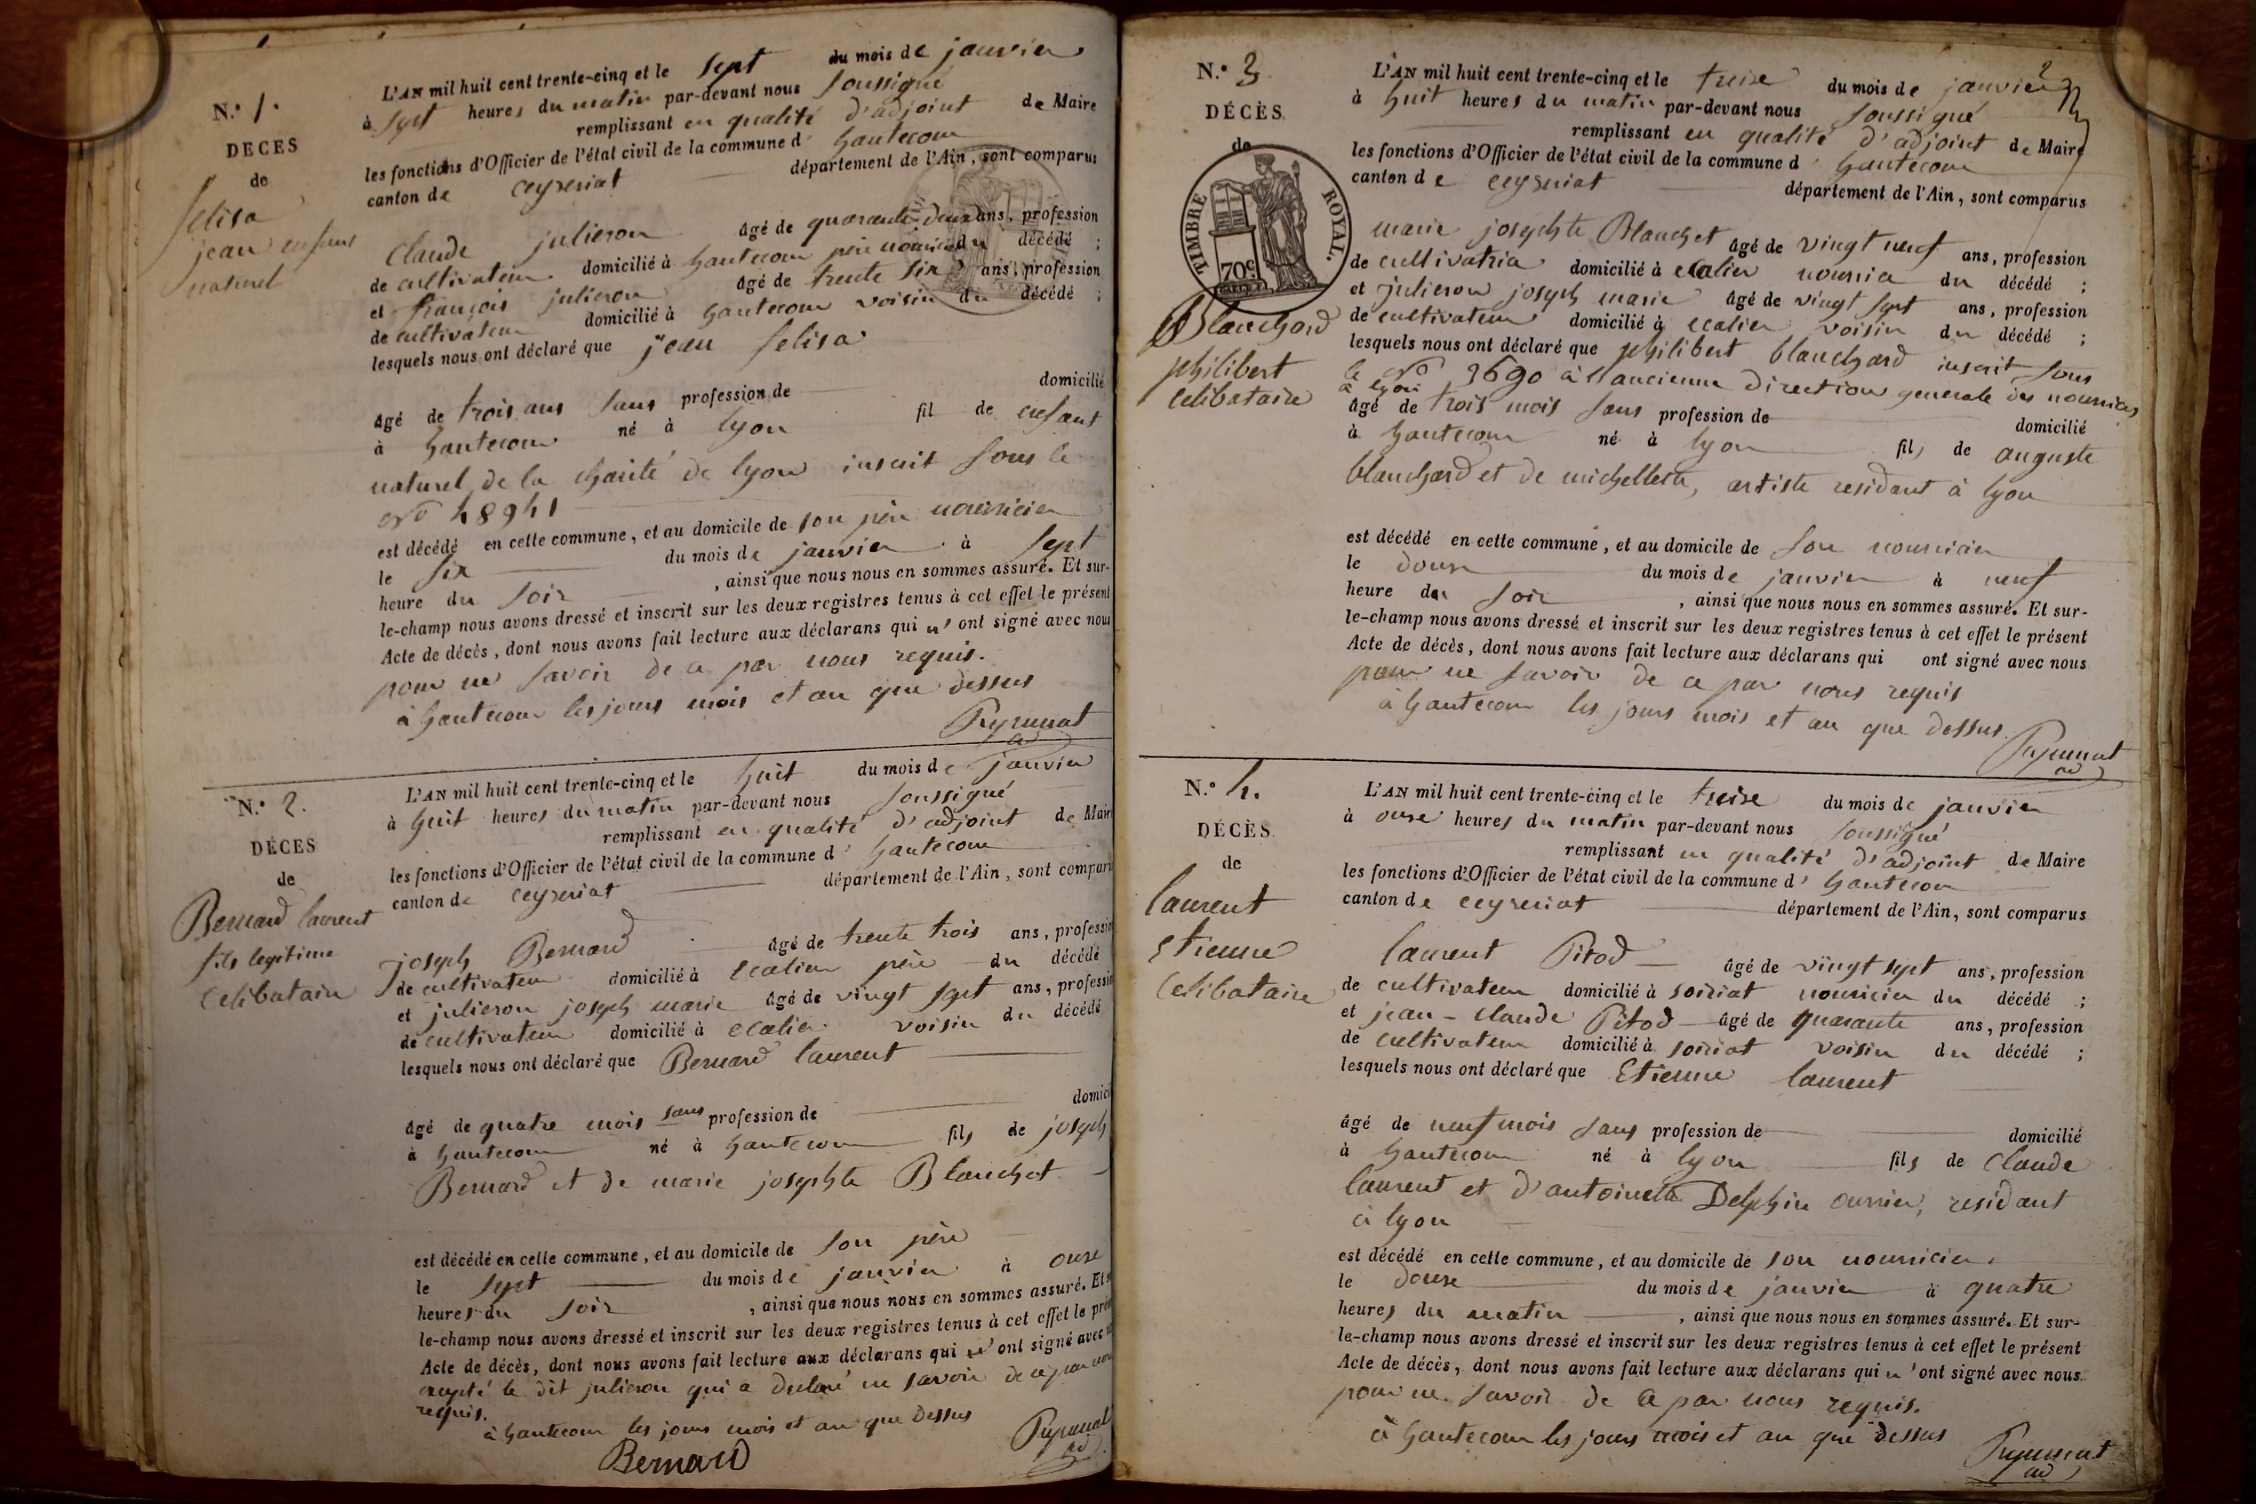 N.° 1.
DECES
de
felisa
jean enfant
naturel
L'AN mil huit cent trente-cinq et le sept du mois de janvier
à sept heures du matin par-devant nous soussigné
remplissant en qualité d'adjoint de Maire
les fonctions d'Officier de l'état civil de la commune d' hautecour
canton de ceyseriat département de l'Ain, sont comparus
Claude julieron âgé de quarante deux ans, profession
de cultivateur domicilié à hautecour père nouricier du décédé ;
et françois julieron âgé de trente six ans, profession
de cultivateur domicilié à hautecour voisin du décédé ;
lesquels nous ont déclaré que jean felisa
âgé de trois ans sans profession de domicilié
à hautecour né à lyon fil de enfant
naturel de la charité de lyon inscrit sous le
N° 48941
est décédé en cette commune, et au domicile de son père nourricier
le six du mois de janvier à sept
heure du soir , ainsi que nous nous en sommes assuré. Et sur-
le-champ nous avons dressé et inscrit sur les deux registres tenus à cet effet le présent
Acte de décès, dont nous avons fait lecture aux déclarans qui n'ont signé avec nous
pour ne savoir de ce par nous requis.
à hautecour les jours mois et an que dessus
N.° 2.
DÉCES
de
Bernard laurent
fils legitime
Celibataire
L'AN mil huit cent trente-cinq et le huit du mois de janvier
à huit heures du matin par-devant nous soussigné
remplissant en qualité d'adjoint de Maire
les fonctions d'Officier de l'état civil de la commune d' hautecour
canton de ceyseriat département de l'Ain, sont comparu
joseph Bernard âgé de trente trois ans, profession
de cultivateur domicilié à ecalier père du décédé
et julieron joseph marie âgé de vingt sept ans, profession
de cultivateur domicilié à ecalier voisin du décédé
lesquels nous ont déclaré que Bernard laurent
âgé de quatre mois sans profession de domici
à hautecour né à hautecour fils de joseph
Bernard et de marie josephte Blanchet
est décédé en cette commune, et au domicile de son père
le sept du mois de janvier à onze
heures du soir , ainsi que nous nous en sommes assuré. Et s
le-champ nous avons dressé et inscrit sur les deux registres tenus à cet effet le prés
Acte de décès, dont nous avons fait lecture aux déclarans qui n'ont signé avec
excepté le dit julieron qui a declaré ne savoir de ce par nous
requis.
à hautecour les jours mois et an que dessus
Bernard
N.° 3
DÉCÈS
de
TIMBRE ROYAL.
70c
Blanchard
philibert
Celibataire
2
L'AN mil huit cent trente-cinq et le treise du mois de janvier
à huit heures du matin par-devant nous soussigné
remplissant en qualité d'adjoint de Maire
les fonctions d'Officier de l'état civil de la commune d' hautecour
canton de ceyseriat département de l'Ain, sont comparus
marie josephte Blanchet âgé de vingt neuf ans, profession
de cultivatrice domicilié à ecalier nourrice du décédé ;
et julieron joseph marie âgé de vingt sept ans, profession
de cultivateur domicilié à ecalier voisin du décédé ;
lesquels nous ont déclaré que philibert blanchard inscrit sous
le N° 3690 à l'ancienne direction generale des nourrices
à lyon
âgé de trois mois sans profession de domicilié
à hautecour né à lyon fils de auguste
blanchard et de michellette, artiste residant à lyon
est décédé en cette commune, et au domicile de son nourricier
le douse du mois de janvier à neuf
heure du soir , ainsi que nous nous en sommes assuré. Et sur-
le-champ nous avons dressé et inscrit sur les deux registres tenus à cet effet le présent
Acte de décès, dont nous avons fait lecture aux déclarans qui ont signé avec nous
pour ne savoir de ce par nous requis
à hautecour les jours mois et an que dessus
N.° 4.
DÉCÈS
de
laurent
Etienne
Celibataire
L'AN mil huit cent trente-cinq et le treise du mois de janvier
à onse heures du matin par-devant nous soussigné
remplissant en qualité d'adjoint de Maire
les fonctions d'Officier de l'état civil de la commune d' hautecour
canton de ceyseriat département de l'Ain, sont comparus
laurent Pitod âgé de vingt sept ans, profession
de cultivateur domicilié à soiriat nouricier du décédé ;
et jean-claude Pitod âgé de quarante ans, profession
de cultivateur domicilié à soiriat voisin du décédé ;
lesquels nous ont déclaré que Etienne laurent
âgé de neuf mois sans profession de domicilié
à hautecour né à lyon fils de Claude
laurent et d'antoinette Delphin ouvrier, residant
à lyon
est décédé en cette commune, et au domicile de son nourricier.
le douse du mois de janvier à quatre
heures du matin , ainsi que nous nous en sommes assuré. Et sur-
le-champ nous avons dressé et inscrit sur les deux registres tenus à cet effet le présent
Acte de décès, dont nous avons fait lecture aux déclarans qui n'ont signé avec nous.
pour ne savoir de ce par nous requis.
à hautecour les jours mois et an que dessus